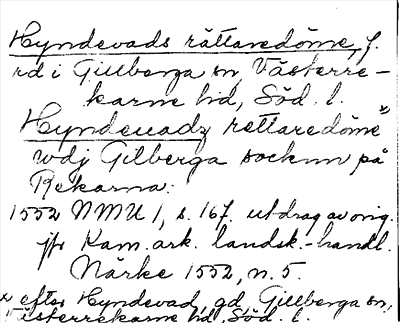 Hyndevads rättaredöme, f.
rd i Gillberga sn, Västerre-
karne hd, Söd. l.
Hyndeuadz rettaredöme x
wdj Gilberga socknn på
Rekarna:
1552 NMU 1, s. 167. utdrag av orig.
jfr Kam. ark. landsk.-handl.
Närke 1552, n. 5.
x efter Hyndevad, gd, Gillberga sn,
Västerrekarne hd, Söd. l.